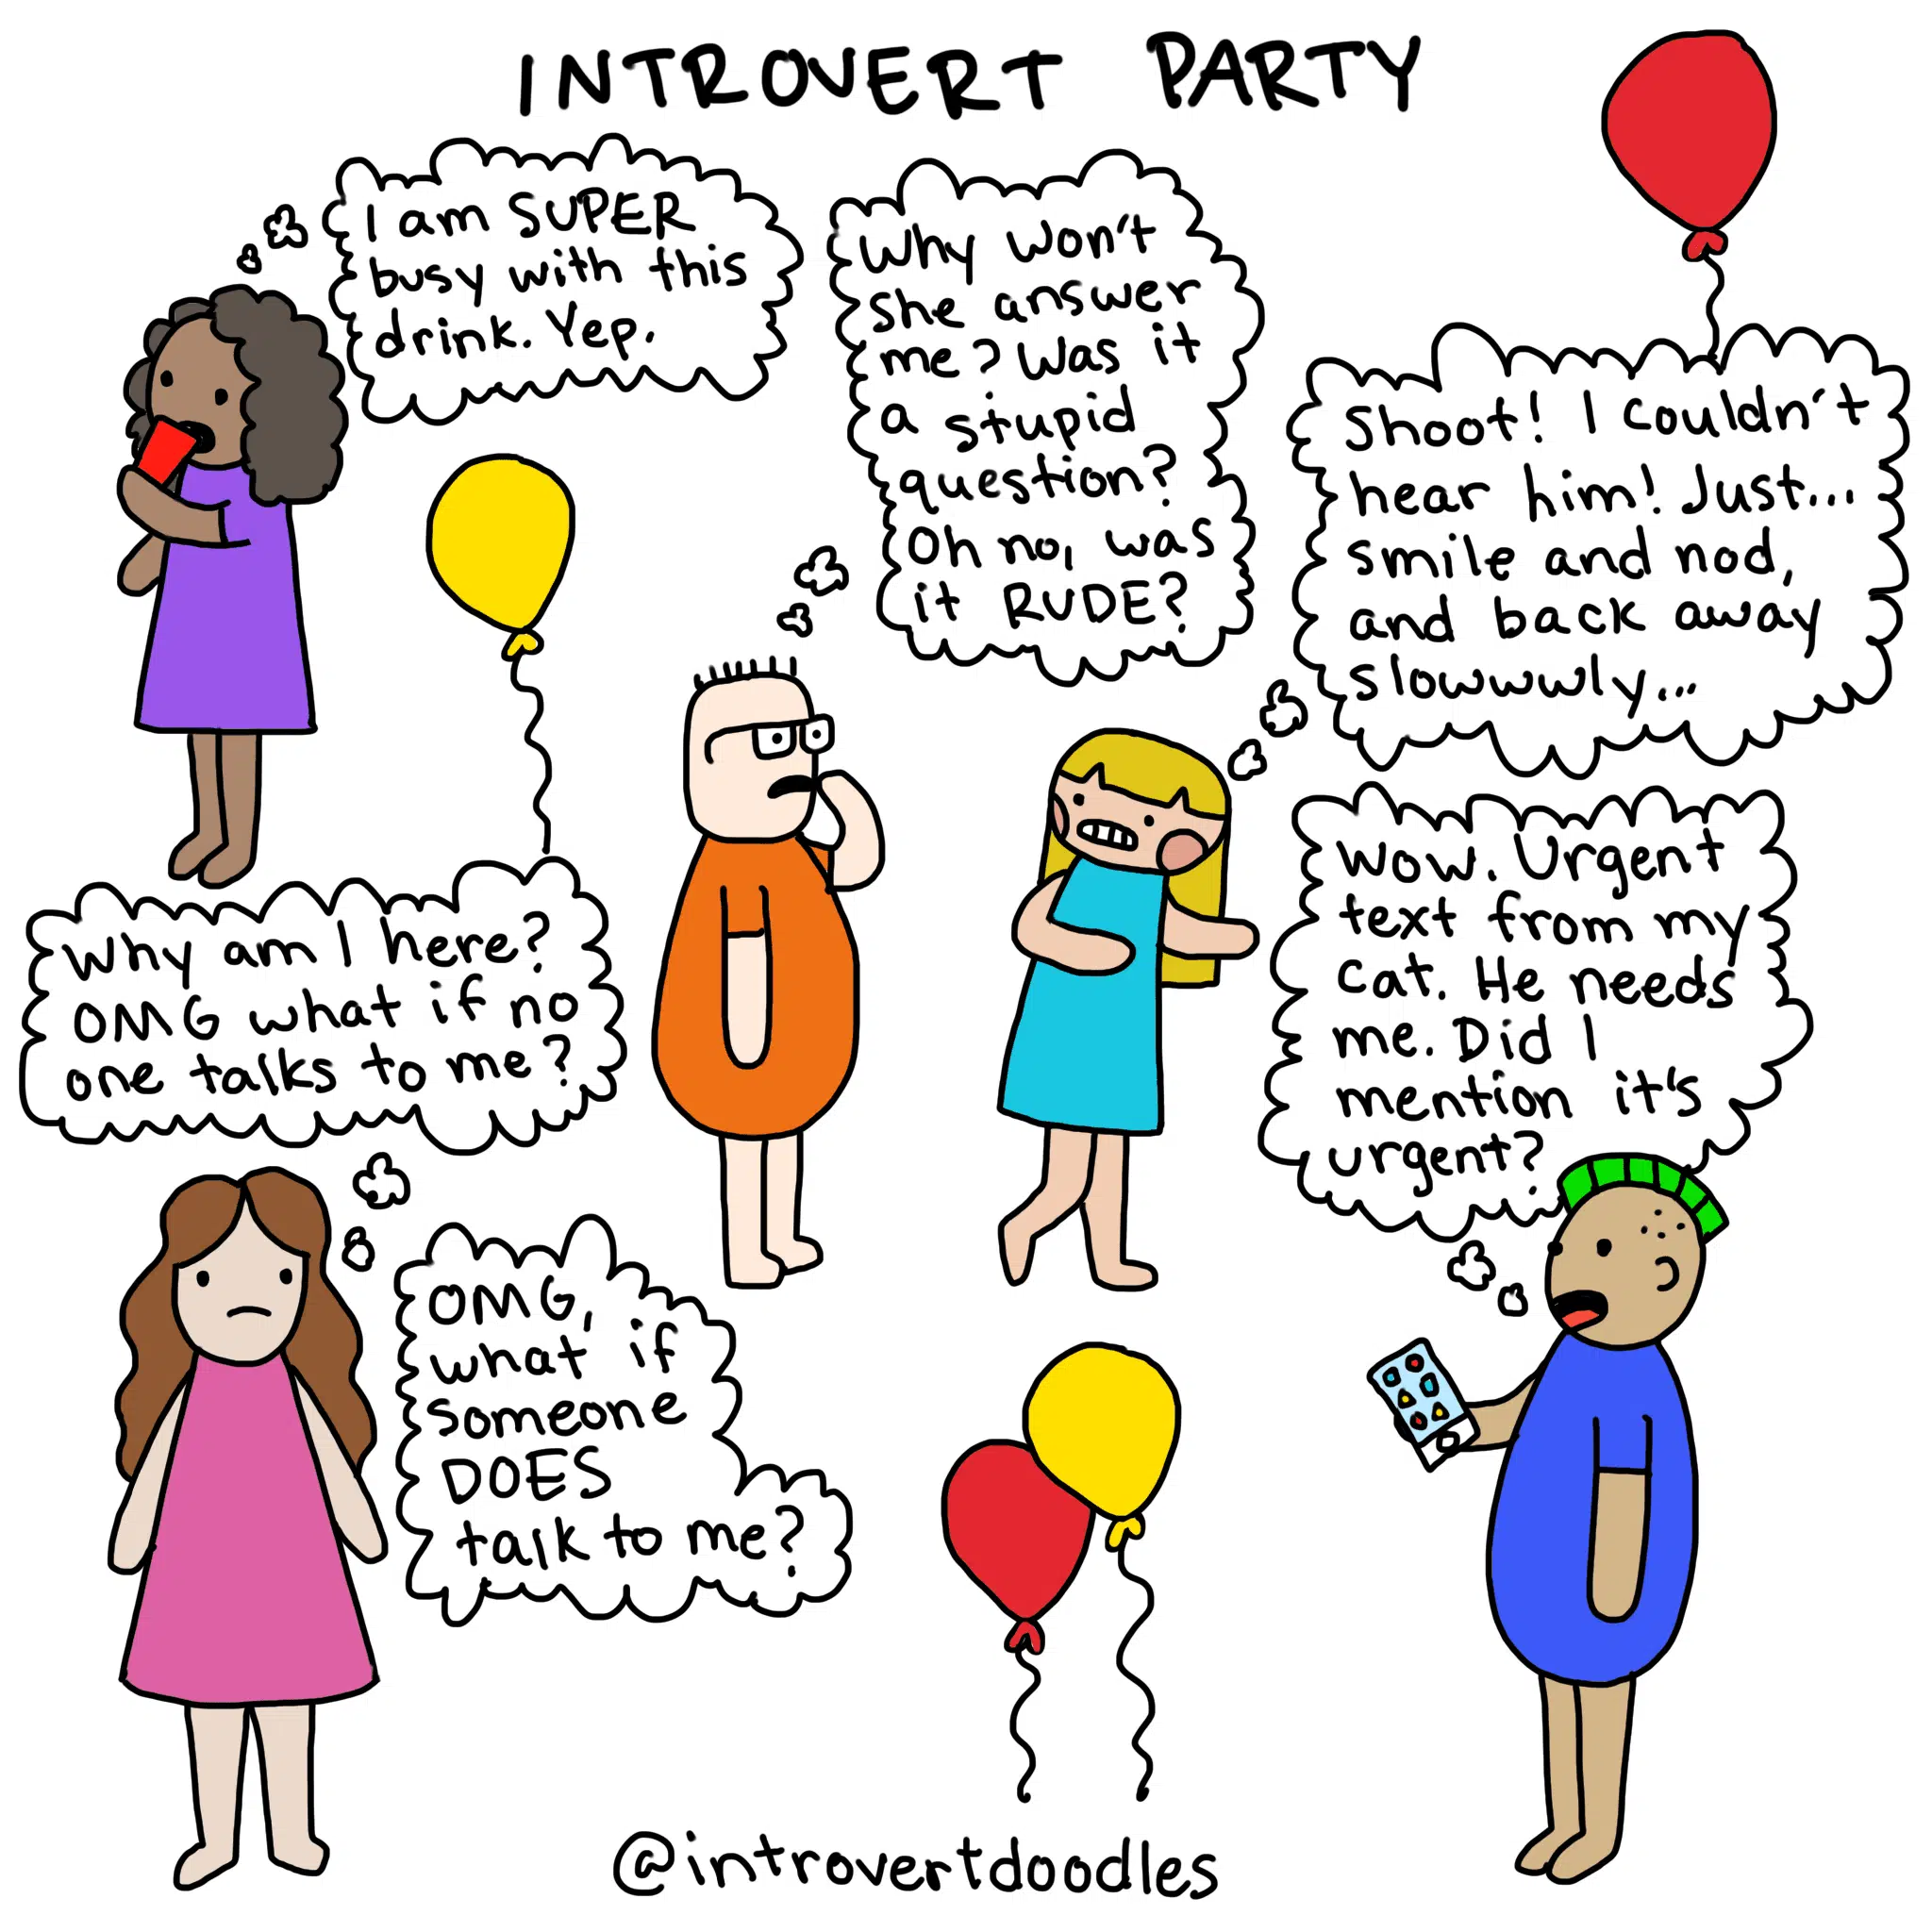 INTROVERT PARTY
I am SUPER
busy with this
drink. Yep.
Why won't
she answer
me? Was it
a stupid
question?
Oh no, was
it RUDE?
Shoot! I couldn't
hear him! Just...
smile and nod,
and back away
slowwwly...
Why am I here?
OMG what if no
one talks to me?
OMG,
what if
someone
DOES
talk to me?
Wow. Urgent
text from my
cat. He needs
me. Did I
mention it's
urgent?
@introvertdoodles